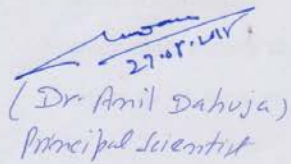 27.08.2018
(Dr. Anil Dahuja)
Principal Scientist